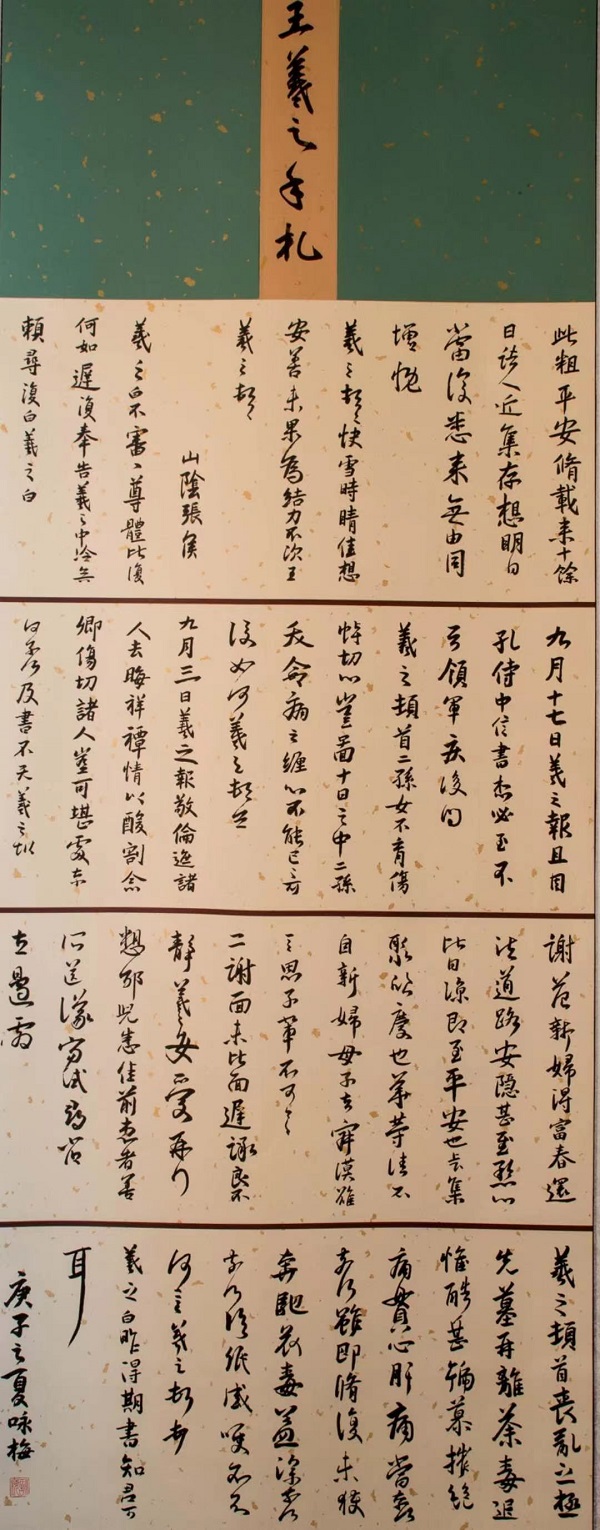 王羲之手札
此粗平安脩載来十餘
日諸人近集存想明日
當復悉来無由同
增慨
羲之頓首快雪時晴佳想
安善未果為結力不次王
羲之頓首
山陰張侯
羲之白不審尊體比復
何如遲復奉告羲之中冷無
賴尋復白羲之白
九月十七日羲之報且因
孔侍中信書想必至不
知領軍疾後問
羲之頓首二孫女不育傷
悼切心豈圖十日之中二孫
夭命痛之纏心不能已已可
復如何羲之頓首
九月三日羲之報敬倫遮諸
人去晦祥禫情以酸割念
卿傷切諸人豈可堪處奈
何奈何及書不次羲之報
謝范新婦得富春還
諸道路安隱甚至懸心
比日涼即至平安也上集
聚欣慶也華等佳不
自新婦母子去寂漠難
言思子輩不可言
二謝面未比面遲詠良不
靜羲之女愛再行
想邵兒悉佳前患者善
所送議當試尋省
左邊劇
羲之頓首喪亂之極
先墓再離荼毒追
惟酷甚號慕摧絕
痛貫心肝痛當奈
奈何雖即脩復未獲
奔馳哀毒益深奈何
奈何臨紙感哽不知
何言羲之頓首
羲之白昨得期書知君可
耳
庚子之夏咏梅